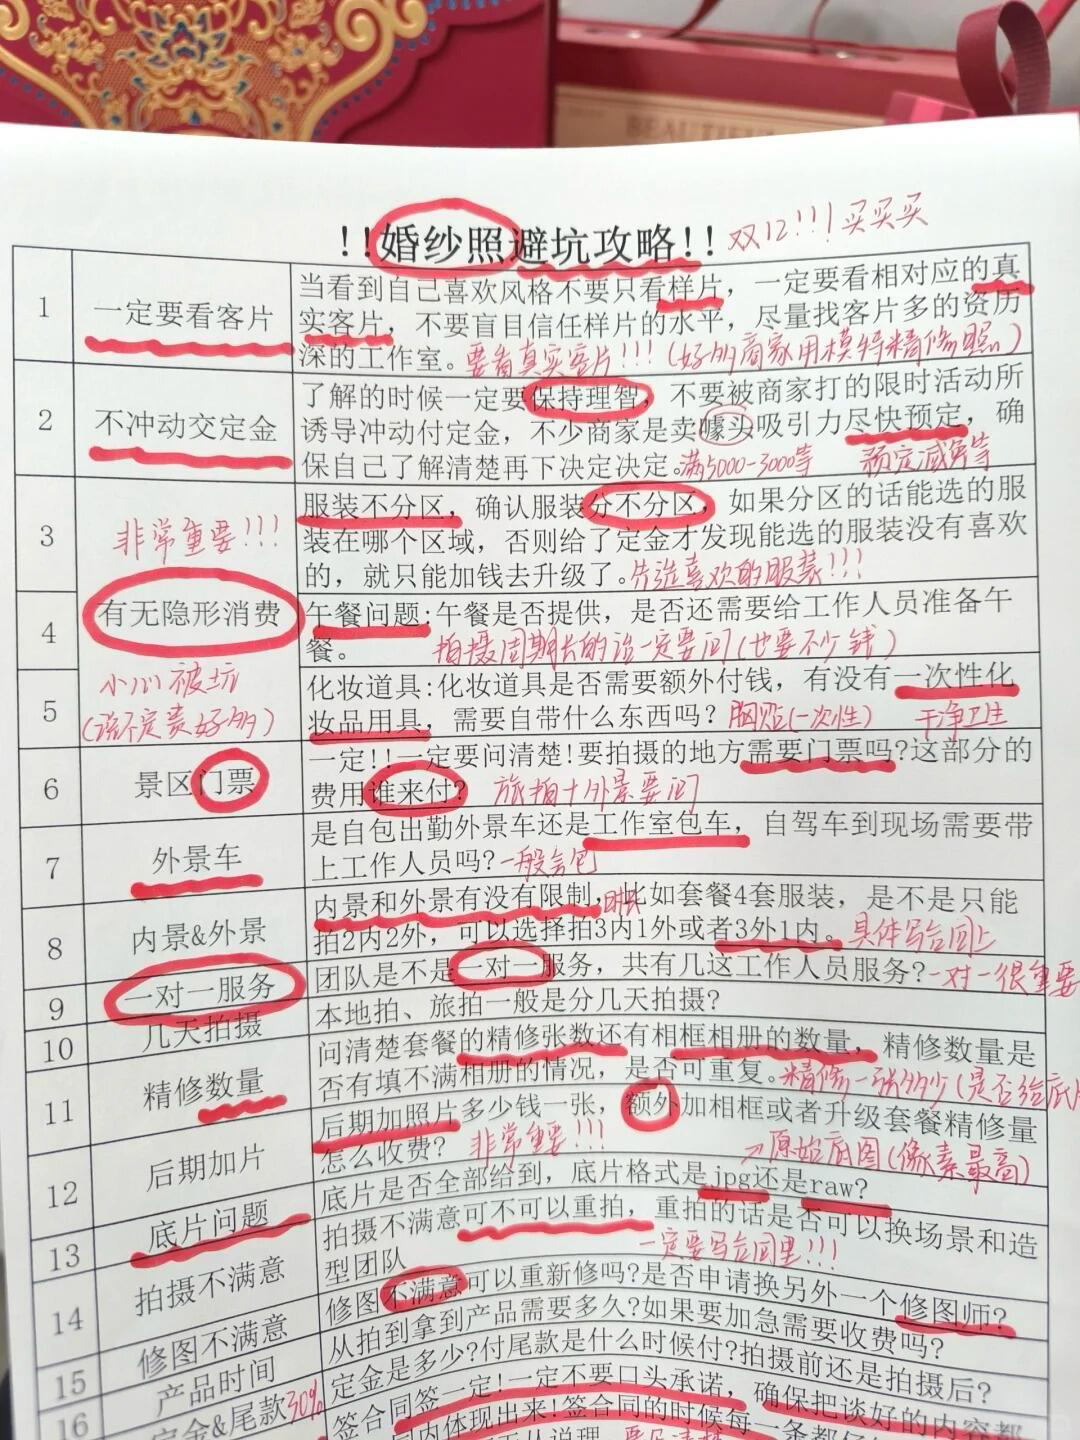 BEAUTIFUL
!!婚纱照避坑攻略!! 双12!!!买买买
1
一定要看客片
当看到自己喜欢风格不要只看样片，一定要看相对应的真
实客片，不要盲目信任样片的水平，尽量找客片多的资历
深的工作室。要看真实客片!!!(好多商家用模特精修照)
2
不冲动交定金
了解的时候一定要保持理智，不要被商家打的限时活动所
诱导冲动付定金，不少商家是卖噱头吸引力尽快预定，确
保自己了解清楚再下决定决定。满5000-3000等 预定减免等
3
非常重要!!!
服装不分区，确认服装分不分区，如果分区的话能选的服
装在哪个区域，否则给了定金才发现能选的服装没有喜欢
的，就只能加钱去升级了。先选喜欢的服装!!!
4
有无隐形消费
午餐问题:午餐是否提供，是否还需要给工作人员准备午
餐。 拍摄周期长的话一定要问(也要不少钱)
5
小心被坑
(说不定贵好多)
化妆道具:化妆道具是否需要额外付钱，有没有一次性化
妆品用具，需要自带什么东西吗?胸贴(一次性) 干净卫生
6
景区门票
一定!!一定要问清楚!要拍摄的地方需要门票吗?这部分的
费用谁来付? 旅拍+外景要问
7
外景车
是自包出勤外景车还是工作室包车，自驾车到现场需要带
上工作人员吗?一般会包
8
内景&外景
内景和外景有没有限制，比如套餐4套服装，是不是只能
拍2内2外，可以选择拍3内1外或者3外1内。具体写合同上
9
一对一服务
团队是不是一对一服务，共有几这工作人员服务?一对一很重要
10
几天拍摄
本地拍、旅拍一般是分几天拍摄?
11
精修数量
问清楚套餐的精修张数还有相框相册的数量，精修数量是
否有填不满相册的情况，是否可重复。精修一张多少(是否给底片
12
后期加片
后期加照片多少钱一张，额外加相框或者升级套餐精修量
怎么收费? 非常重要!!! →原始底图(像素最高)
13
底片问题
底片是否全部给到，底片格式是jpg还是raw?
拍摄不满意
拍摄不满意可不可以重拍，重拍的话是否可以换场景和造
型团队 一定要写合同里!!!
14
修图不满意
修图不满意可以重新修吗?是否申请换另外一个修图师?
15
产品时间
从拍到拿到产品需要多久?如果要加急需要收费吗?
16
定金&尾款30%
定金是多少?付尾款是什么时候付?拍摄前还是拍摄后?
签合同签一定!一定不要口头承诺，确保把谈好的内容都
内体现出来!签合同的时候每一条都